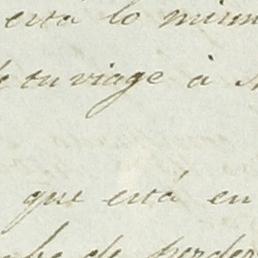 está lo mism
tu viage á
que está en
de perder